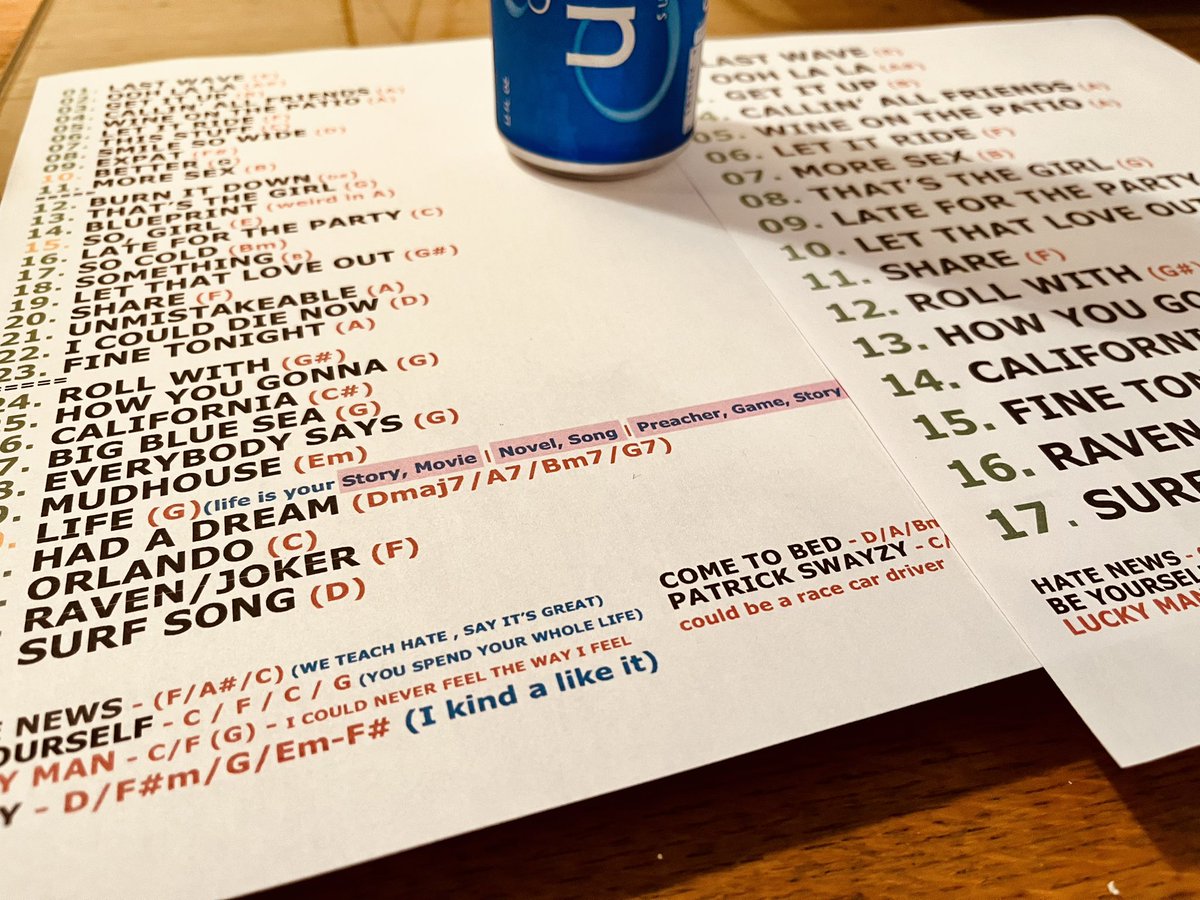 LAST WAVE
CALLIN' ALL FRIENDS (A)
WINE ON THE PATIO (A)
LET IT RIDE (F)
SMILE SO WIDE
08. EXPAT
09. BETTER
10. MORE SEX (B)
11. BURN IT DOWN
=====
12. THAT'S THE GIRL (G)
13. BLUEPRINT (weird in A)
14. SO, GIRL (E)
15. LATE FOR THE PARTY (C)
16. SO COLD (Bm)
17. SOMETHING (B)
18. LET THAT LOVE OUT (G#)
19. SHARE (F)
20. UNMISTAKEABLE (A)
21. I COULD DIE NOW (D)
22. FINE TONIGHT (A)
23.
=====
24. ROLL WITH (G#)
25. HOW YOU GONNA (G)
6. CALIFORNIA (C#)
7. BIG BLUE SEA (G)
8. EVERYBODY SAYS (G)
9. MUDHOUSE (Em)
0. LIFE (G)(life is your Story, Movie | Novel, Song | Preacher, Game, Story
HAD A DREAM (Dmaj7/A7/Bm7/G7)
ORLANDO (C)
RAVEN/JOKER (F)
SURF SONG (D)
E NEWS - (F/A#/C) (WE TEACH HATE , SAY IT'S GREAT)
OURSELF - C / F / C / G (YOU SPEND YOUR WHOLE LIFE)
Y MAN - C/F (G) - I COULD NEVER FEEL THE WAY I FEEL
Y - D/F#m/G/Em-F# (I kind a like it)
COME TO BED - D/A/Bm
PATRICK SWAYZY - C/
could be a race car driver
u
LAST WAVE
OOH LA LA (A#)
GET IT UP
4. CALLIN' ALL FRIENDS (A)
05. WINE ON THE PATIO (A)
06. LET IT RIDE (F)
07. MORE SEX (B)
08. THAT'S THE GIRL (G)
09. LATE FOR THE PARTY
10. LET THAT LOVE OUT
11. SHARE (F)
12. ROLL WITH (G#)
13. HOW YOU GO
14. CALIFORNI
15. FINE TON
16. RAVEN
17. SURF
HATE NEWS -
BE YOURSEL
LUCKY MAN